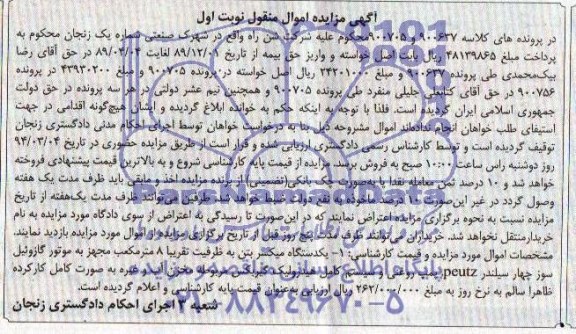 آگهی مزایده اموال منقول نوبت اول
در پرونده های کلاسه ۹۰۰۶۳۷ و ۹۰۰۷۰۵ محکوم علیه شرکت شن راه واقع در شهرک صنعتی شماره یک زنجان محکوم به
پرداخت مبلغ ۴۸۱۳۹۸۶۵ ریال بابت اصل خواسته و واریز حق بیمه از تاریخ ۸۹/۱۲/۰۱ لغایت ۸۹/۰۴/۰۴ در حق آقای رضا
بیک‌محمدی طی پرونده ۹۰۰۶۳۷ و مبلغ ۲۴۲۰۱۰۰۰ ریال اصل خواسته در پرونده ۹۰۰۷۰۵ و مبلغ ۴۳۹۳۰۲۰۰ در پرونده
۹۰۰۷۵۶ در حق آقای جلیلی منفرد طی پرونده ۹۰۰۷۰۵ و همچنین نیم عشر دولتی در هر سه پرونده در حق دولت
جمهوری اسلامی ایران گردیده است. فلذا با توجه به اینکه حکم به خوانده ابلاغ گردیده و ایشان هیچ‌گونه اقدامی در جهت
استیفای طلب خواهان انجام نداده‌اند اموال مشروحه ذیل بنا به درخواست خواهان توسط اجرای احکام مدنی دادگستری زنجان
توقیف گردیده است و توسط کارشناس رسمی دادگستری ارزیابی شده و قرار است از طریق مزایده حضوری در تاریخ ۹۴/۰۳/۰۴
روز دوشنبه راس ساعت ۱۰:۰۰ صبح به فروش برسد. مزایده از قیمت پایه کارشناسی شروع و به بالاترین قیمت پیشنهادی فروخته
خواهد شد و ۱۰ درصد ثمن معامله نقدا یا به‌صورت چک بانکی(تضمینی) از برنده مزایده اخذ و مابقی باید ظرف مدت یک هفته
وصول گردد در غیر این‌صورت ۱۰ درصد ماخوذه به نفع دولت ضبط خواهد شد. طرفین می‌توانند ظرف مدت یک‌هفته از تاریخ
مزایده نسبت به نحوه برگزاری مزایده اعتراض نمایند که در این‌صورت تا رسیدگی به اعتراض از سوی دادگاه مورد مزایده به نام
خریدار منتقل نخواهد شد. خریداران می‌توانند ظرف مدت پنج روز قبل از تاریخ برگزاری مزایده از اموال مورد مزایده بازدید نمایند.
مشخصات اموال مورد مزایده و قیمت کارشناسی: ۱- یکدستگاه میکسر بتن به ظرفیت تقریبا ۸ مترمکعب مجهز به موتور گازوئیل
سوز چهار سیلندر peutz سیستم کامل هیدرولیک گیربکس مربوطه مخزن آب و غیره به صورت کامل کارکرده
ظاهرا سالم به نرخ روز به مبلغ ۲۶۲/۰۰۰/۰۰۰ ریال ارزیابی به‌عنوان قیمت پایه کارشناسی و اعلام گردیده است.
شعبه ۳ اجرای احکام دادگستری زنجان
۰۲۱-۸۸۳۴۹۶۷۰-۵